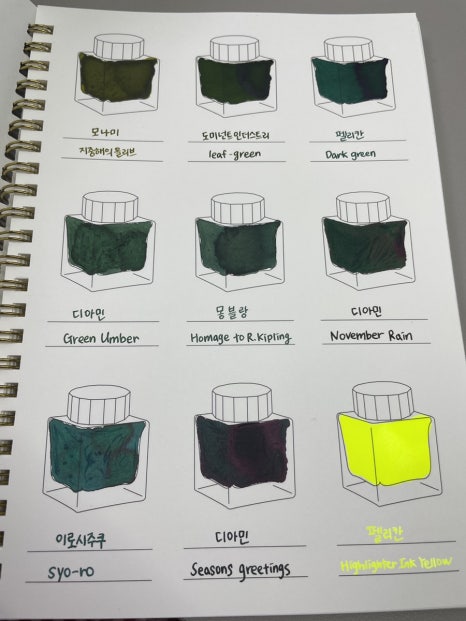 모나미
지중해의 올리브
도미넌트인더스트리
leaf-green
펠리칸
Dark green
디아민
Green Umber
몽블랑
Homage to R.Kipling
디아민
November Rain
이로시주쿠
syo-ro
디아민
Seasons greetings
펠리칸
Highlighter Ink Yellow